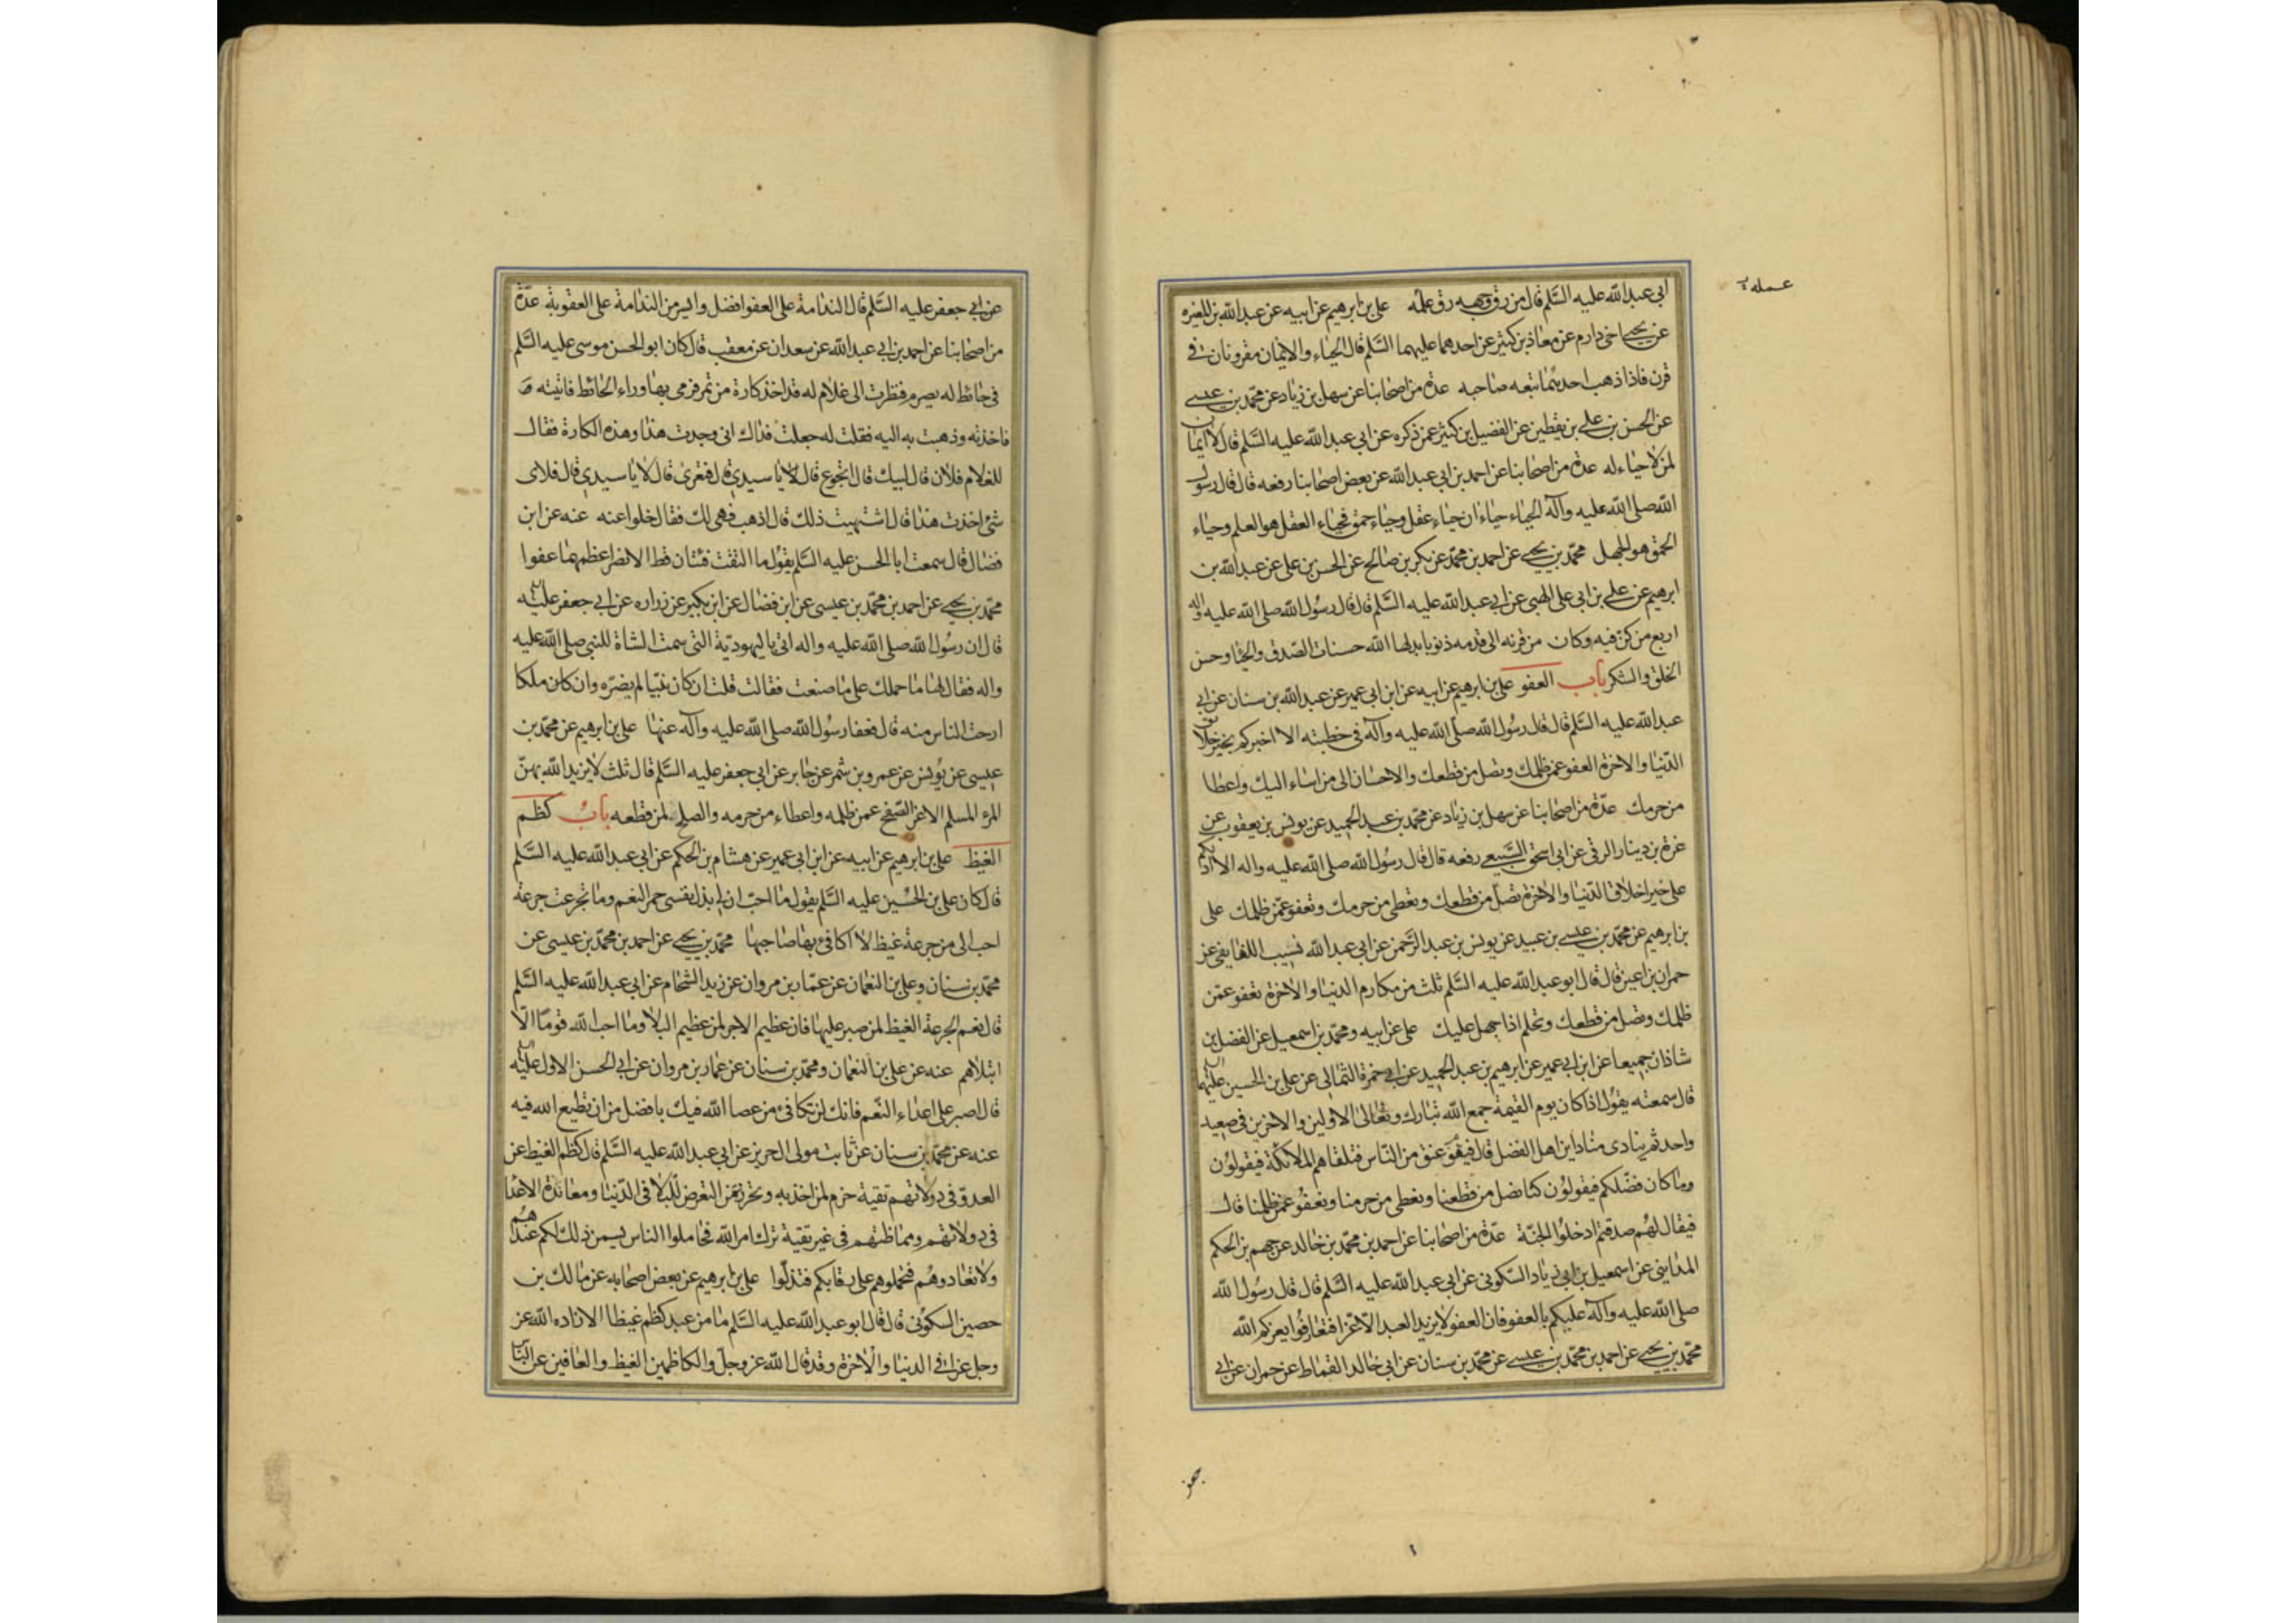 ابي عبد الله عليه السَّلم قال من رق وجهه رق علمه علي بن ابرهيم عن ابيه عن عبد الله بن المغيره
عمله
عن يحيى اخي دارم عن معاذ بن كثير عن احدهما عليهما السَّلم قال الحياء والايمان مقرونان في
قرن فاذا ذهب احدهما تبعه صاحبه عدة من اصحابنا عن سهل بن زياد عن محمد بن عيسى
عن الحسن بن علي بن يقطين عن الفضيل بن كثير عمن ذكره عن ابي عبد الله عليه السَّلم قال لا ايمان
لمن لا حياء له عدة من اصحابنا عن احمد بن ابي عبد الله عن بعض اصحابنا رفعه قال قال رسول
الله صلى الله عليه وآله الحياء حياءان حياء عقل وحياء حمق فحياء العقل هو العلم وحياء
الحمق هو الجهل محمد بن يحيى عن احمد بن محمد عن بكر بن صالح عن الحسن بن علي عن عبد الله بن
ابرهيم عن علي بن ابي علي اللهبي عن ابي عبد الله عليه السَّلم قال قال رسول الله صلى الله عليه واله
اربع من كن فيه وكان من قرنه الى قدمه ذنوبا بدلها الله حسنات الصدق والحيا وحسن
الخلق والشكر باب العفو علي بن ابرهيم عن ابيه عن ابن ابي عمير عن عبد الله بن سنان عن ابي
عبد الله عليه السَّلم قال قال رسول الله صلى الله عليه وآله في خطبته الا اخبركم بخير خلائق
الدنيا والاخرة العفو عمن ظلمك وتصل من قطعك والاحسان الى من اساء اليك واعطا
من حرمك عدة من اصحابنا عن سهل بن زياد عن محمد بن عبد الحميد عن يونس بن يعقوب عن
غرة بن دينار الرقي عن ابي اسحق السبيعي رفعه قال قال رسول الله صلى الله عليه واله الا ادلكم
على خير اخلاق الدنيا والاخرة تصل من قطعك وتعطي من حرمك وتعفو عمن ظلمك على
بن ابرهيم عن محمد بن عيسى بن عبيد عن يونس بن عبد الرحمن عن ابي عبد الله نسيب اللفايفي عن
حمران بن اعين قال قال ابو عبد الله عليه السَّلم ثلث من مكارم الدنيا والاخرة تعفو عمن
ظلمك وتصل من قطعك وتحلم اذا جهل عليك علي عن ابيه ومحمد بن اسمعيل عن الفضل بن
شاذان جميعا عن ابن ابي عمير عن ابرهيم بن عبد الحميد عن ابي حمزة الثمالي عن علي بن الحسين عليهما
قال سمعته يقول اذا كان يوم القيمة جمع الله تبارك وتعالى الاولين والاخرين في صعيد
واحد ثم ينادي مناد اين اهل الفضل قال فيقوم عنق من الناس فتلقاهم الملائكة فيقولون
وما كان فضلكم فيقولون كنا نصل من قطعنا ونعطي من حرمنا ونعفو عمن ظلمنا قال
فيقال لهم صدقتم ادخلوا الجنة عدة من اصحابنا عن احمد بن محمد بن خالد عن جهم بن الحكم
المدايني عن اسمعيل بن ابي زياد السكوني عن ابي عبد الله عليه السَّلم قال قال رسول الله
صلى الله عليه وآله عليكم بالعفو فان العفو لا يزيد العبد الا عزا فتعافوا يعزكم الله
محمد بن يحيى عن احمد بن محمد بن عيسى عن محمد بن سنان عن ابي خالد القماط عن حمران عن ابي
عن ابي جعفر عليه السَّلم قال الندامة على العفو افضل وايسر من الندامة على العقوبة عدة
من اصحابنا عن احمد بن ابي عبد الله عن سعدان عن معقب قال كان ابو الحسن موسى عليه السَّلم
في حائط له يصرم فنظرت الى غلام له قد اخذ كارة من تمر فرمى بها وراء الحائط فاتيته
فاخذته وذهبت به اليه فقلت له جعلت فداك اني وجدت هذا وهذه الكارة فقال
للغلام فلان قال لبيك قال اتجوع قال لا يا سيدي قال فتعرى قال لا يا سيدي قال فلاى
شئ اخذت هذا قال اشتهيت ذلك قال اذهب فهي لك فقال خلوا عنه عنه عن ابن
فضال قال سمعت ابا الحسن عليه السَّلم يقول ما التقت فئتان قط الا نصر اعظمهما عفوا
محمد بن يحيى عن احمد بن محمد بن عيسى عن ابن فضال عن ابن بكير عن زراره عن ابي جعفر عليه
قال ان رسول الله صلى الله عليه واله اتي باليهودية التي سمت الشاة للنبي صلى الله عليه
واله فقال لها ما حملك على ما صنعت فقالت قلت ان كان نبيا لم يضره وان كان ملكا
ارحت الناس منه قال فعفا رسول الله صلى الله عليه وآله عنها علي بن ابرهيم عن محمد بن
عيسى عن يونس عن عمرو بن شمر عن جابر عن ابي جعفر عليه السَّلم قال ثلث لا يزيد الله بهن
المرء المسلم الا عزا الصفح عمن ظلمه واعطاء من حرمه والصلة لمن قطعه باب كظم
الغيظ علي بن ابرهيم عن ابيه عن ابن ابي عمير عن هشام بن الحكم عن ابي عبد الله عليه السَّلم
قال كان علي بن الحسين عليه السَّلم يقول ما احب ان لي بذل نفسي حمر النعم وما تجرعت جرعة
احب الى من جرعة غيظ لا اكافئ بها صاحبها محمد بن يحيى عن احمد بن محمد بن عيسى عن
محمد بن سنان وعلي بن النعمان عن عمار بن مروان عن زيد الشحام عن ابي عبد الله عليه السَّلم
قال نعم الجرعة الغيظ لمن صبر عليها فان عظيم الاجر لمن عظيم البلا وما احب الله قوما الا
ابتلاهم عنه عن علي بن النعمان ومحمد بن سنان عن عمار بن مروان عن ابي الحسن الاول عليه
قال اصبر على اعداء النعم فانك لن تكافئ من عصا الله فيك بافضل من ان تطيع الله فيه
عنه عن محمد بن سنان عن ثابت مولى ال حريز عن ابي عبد الله عليه السَّلم قال كظم الغيظ عن
العدو في دولاتهم تقية حزم لمن اخذ به وتحرز من التعرض للبلا في الدنيا ومعاندة الاعدا
في دولاتهم ومماظتهم في غير تقية ترك امر الله فجاملوا الناس يسمن ذلك لكم عندهم
ولا تعادوهم فتحملوهم على رقابكم فتذلوا علي بن ابرهيم عن بعض اصحابه عن مالك بن
حصين السكوني قال قال ابو عبد الله عليه السَّلم ما من عبد كظم غيظا الا زاده الله عز
وجل عزا في الدنيا والاخرة وقد قال الله عز وجل والكاظمين الغيظ والعافين عن النا